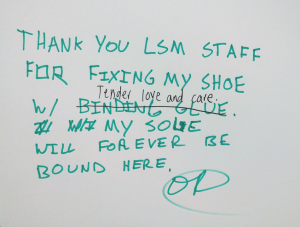 THANK YOU LSM STAFF
FOR FIXING MY SHOE
Tender love and care.
W/ BINDING GLUE.
MY SOLE
WILL FOREVER BE
BOUND HERE.